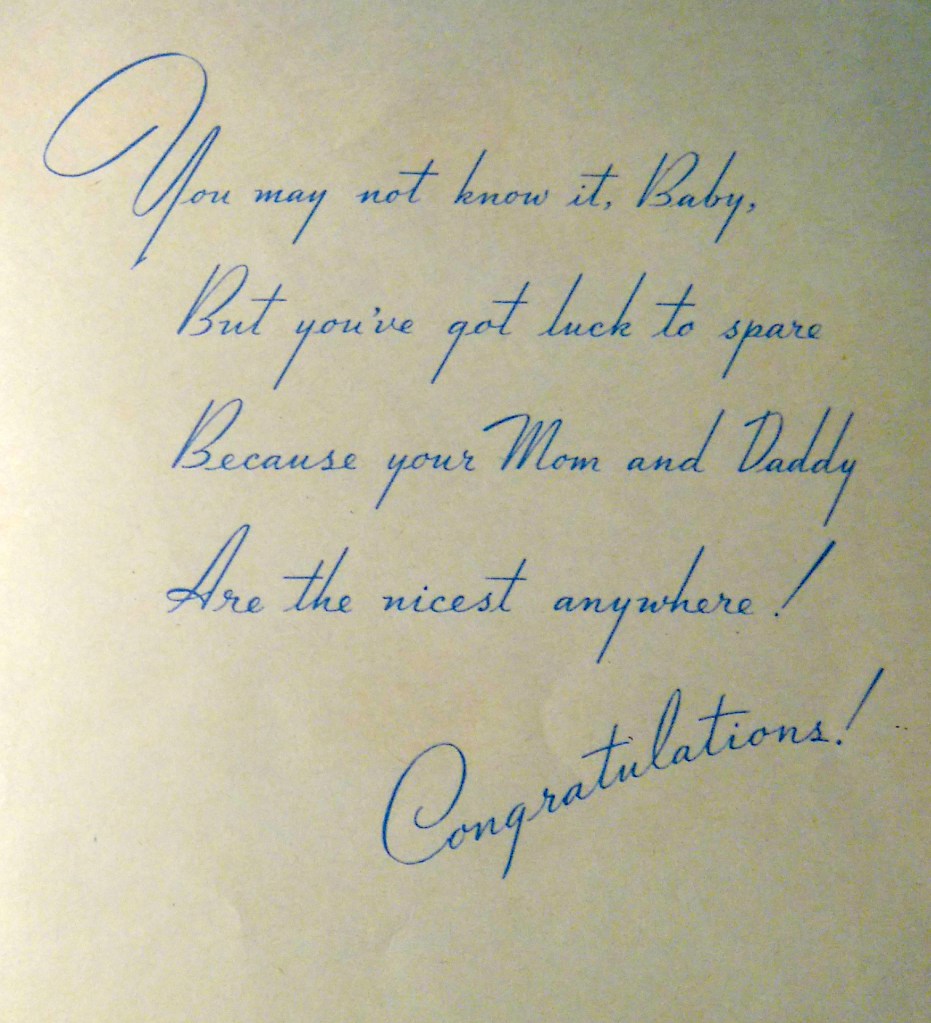 You may not know it, Baby,
But you've got luck to spare
Because your Mom and Daddy
Are the nicest anywhere!
Congratulations!